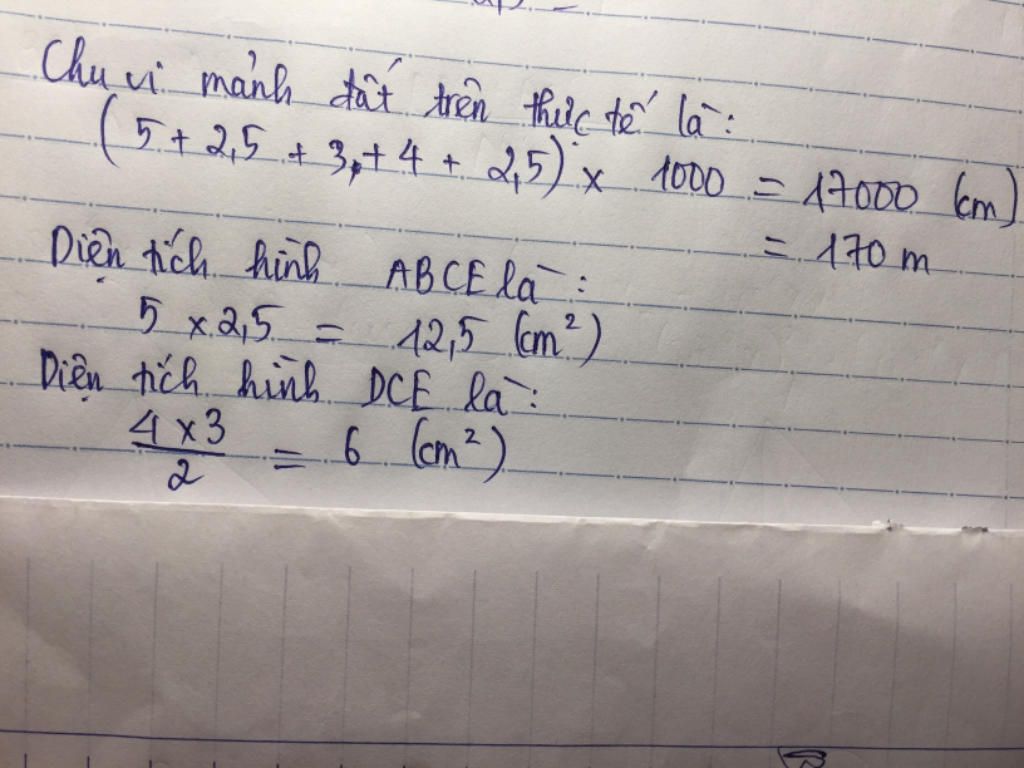 Chu vi mảnh đất trên thực tế là:
(5 + 2,5 + 3, + 4 + 2,5) × 1000 = 17000 (cm)
= 170 m
Diện tích hình ABCE là:
5 × 2,5 = 12,5 (cm²)
Diện tích hình DCE là:
4 × 3 / 2 = 6 (cm²)